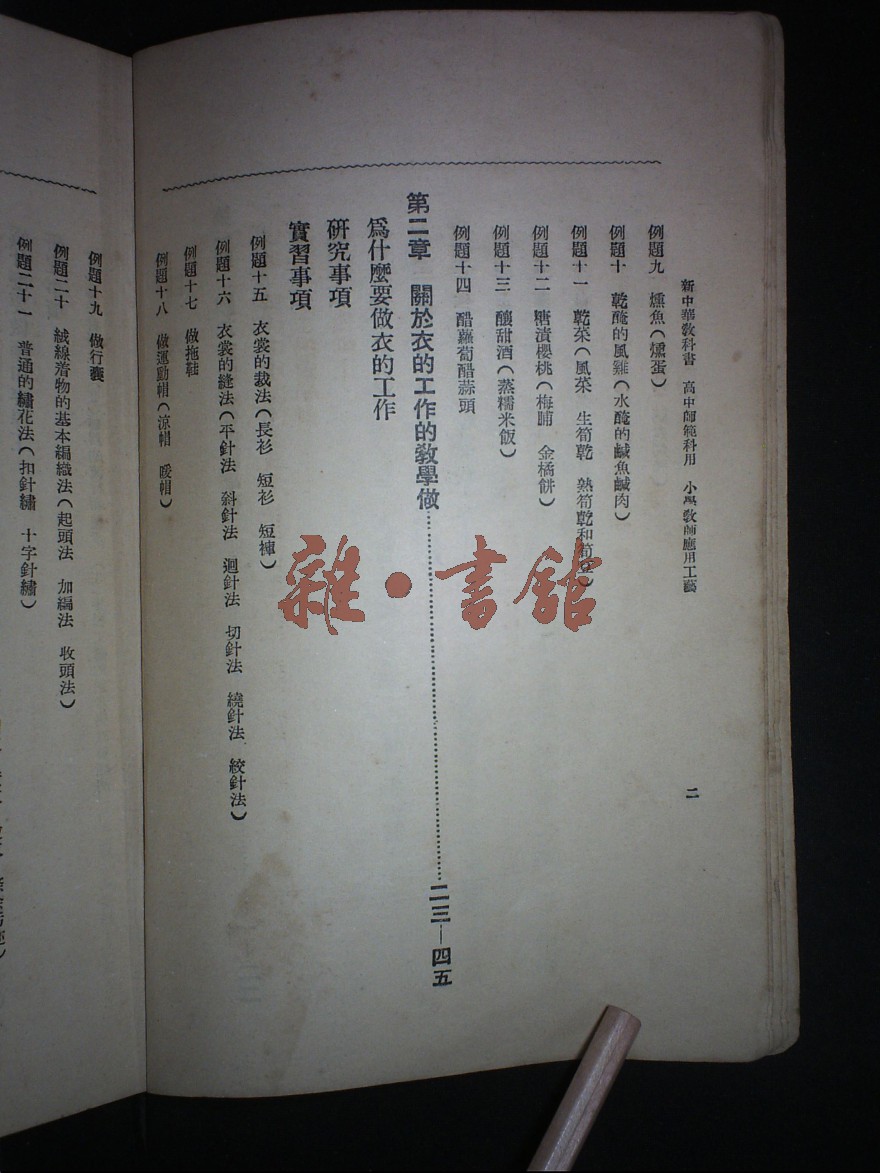 新中華教科書　高中師範科用　小學教師應用工藝
二
例題九　燻魚(燻蛋)
例題十　乾醃的風雞(水醃的鹹魚鹹肉)
例題十一　乾菜(風菜　生筍乾　熟筍乾和筍)
例題十二　糖漬櫻桃(梅脯　金橘餅)
例題十三　釀甜酒(蒸糯米飯)
例題十四　醋蘿蔔醋蒜頭
第二章　關於衣的工作的教學做……二三—四五
爲什麼要做衣的工作
研究事項
實習事項
例題十五　衣裳的裁法(長衫　短衫　短褲)
例題十六　衣裳的縫法(平針法　斜針法　迴針法　切針法　繞針法　絞針法)
例題十七　做拖鞋
例題十八　做運動帽(涼帽　暖帽)
例題十九　做行囊
例題二十　絨線着物的基本編織法(起頭法　加編法　收頭法)
例題二十一　普通的繡花法(扣針繡　十字針繡)
雜·書舘